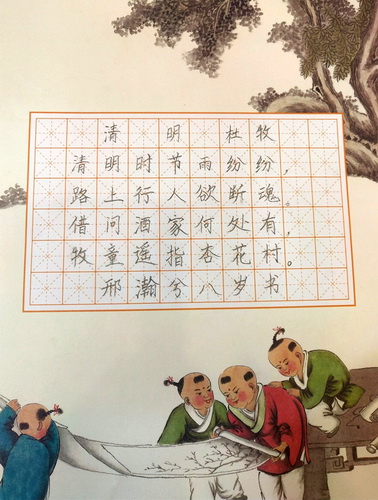 清 明 杜牧
清明时节雨纷纷，
路上行人欲断魂。
借问酒家何处有，
牧童遥指杏花村。
邢瀚兮八岁书